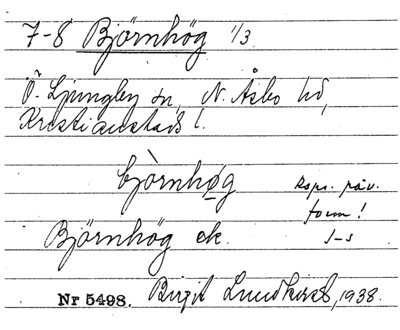 7-8 Björnhög 1/3.
Ö. Ljungby sn, N. Åsbo hd,
Kristianstads l.
bjò̀rnhøg
Rspr. påv.
form!
Björnhög ek.
Nr 5498. Birgit Lundkvist, 1938.